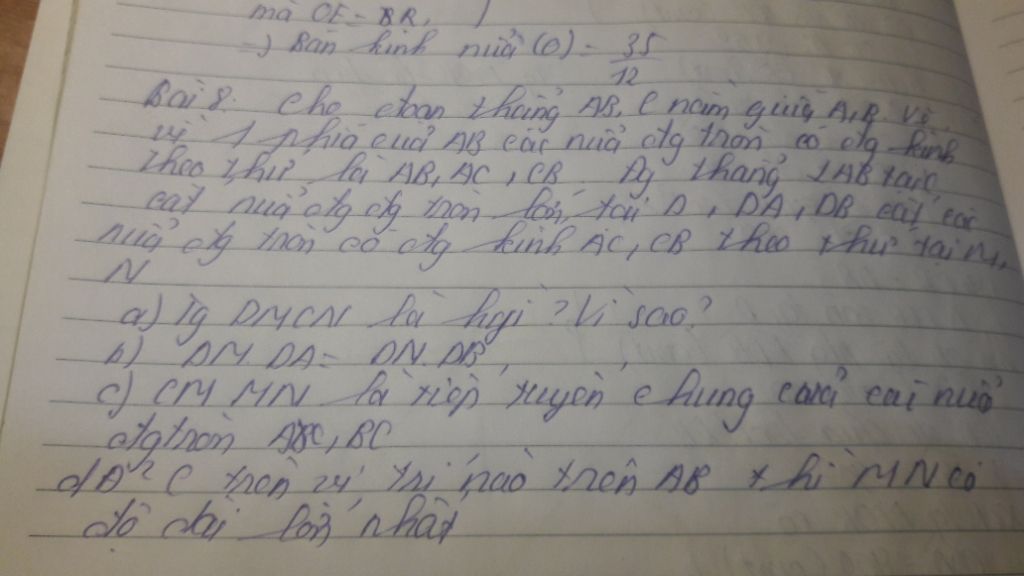 mà OE = BR,
=> Bán kính nửa (O) = 35/12
Bài 8. Cho đoạn thẳng AB, C nằm giữa A, B. Vẽ
về 1 phía của AB các nửa đg tròn có đg kính
theo thứ là AB, AC, CB. Đg thẳng ⊥AB tại C
cắt nửa đg đg tròn lớn tại D, DA, DB cắt các
nửa đg tròn có đg kính AC, CB theo thứ tại M,
N
a) Tg DMCN là hgì? Vì sao?
b) DM.DA = DN.DB
c) CM MN là tiếp tuyến chung của nửa
đgtròn AC, BC
d) C trên vị trí nào trên AB thì MN có
độ dài lớn nhất